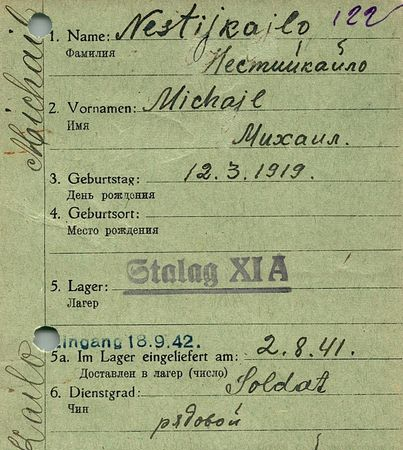 Michail
1. Name: Nestijkajlo 122
Фамилия Нестийкайло
2. Vornamen: Michajl
Имя Михаил.
3. Geburtstag: 12.3.1919.
День рождения
4. Geburtsort:
Место рождения
Stalag XI A
5. Lager:
Лагер
Eingang 18.9.42.
5a. Im Lager eingeliefert am: 2.8.41.
Доставлен в лагер (число)
6. Dienstgrad: Soldat
Чин рядовой